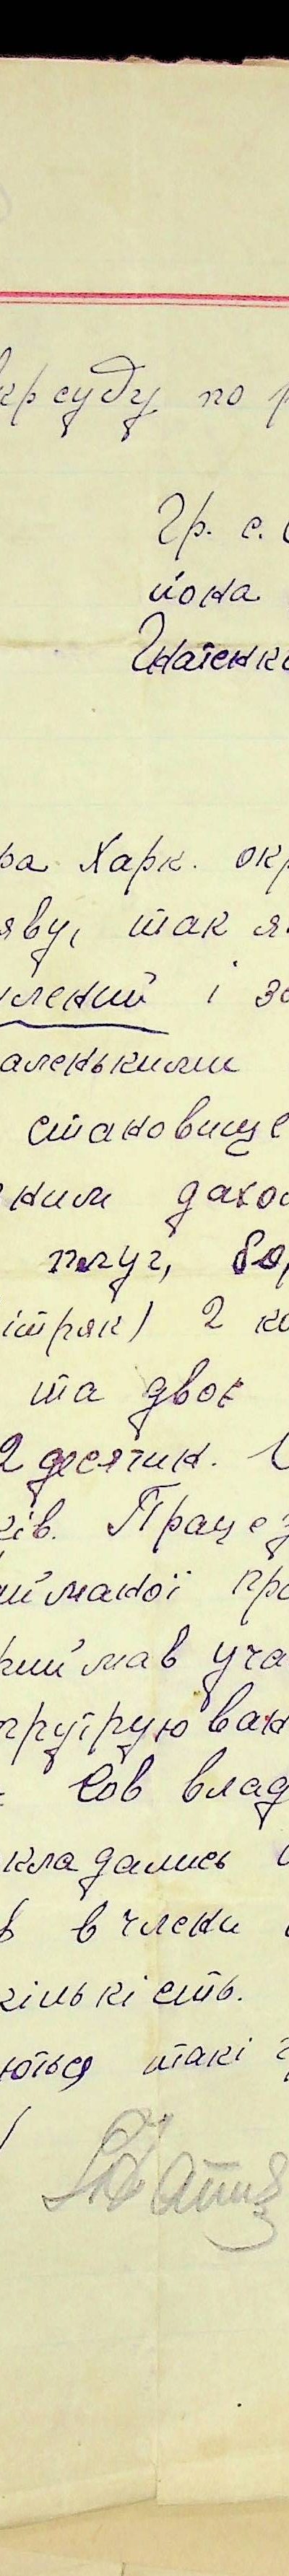 окрсуду по
Гр. с.
йона
Гнатенко
ра Харк. окр
яву, так я
улений і за
аленькими
становище
ким дахо
плуг, бо
ітряк) 2 ко
та двоє
2 десятин.
ків. Праце
айманої пра
риймав уча
струїрував
Сов влад
кладались
в в члени
кількість.
ються такі